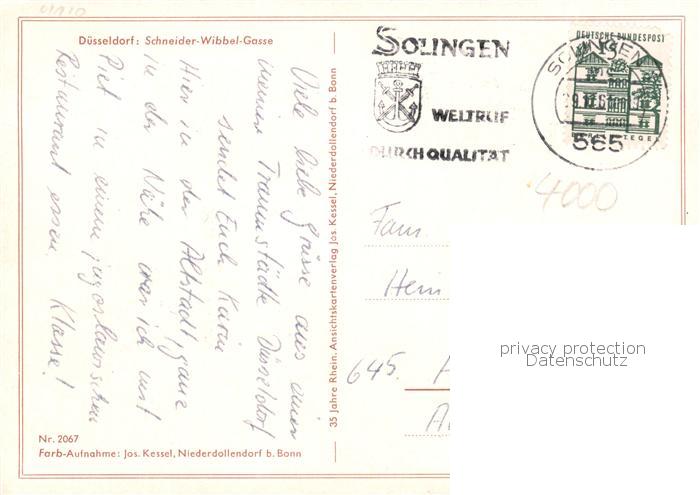 Düsseldorf: Schneider-Wibbel-Gasse
Viele liebe Grüsse aus einer
meiner Traumstädte Düsseldorf
sendet Euch Karin
Hier in der Altstadt, ganz
in der Nähe war ich mit
Piet in einem jugoslawischen
Restaurant essen. Klasse!
Nr. 2067
Farb-Aufnahme: Jos. Kessel, Niederdollendorf b. Bonn
35 Jahre Rhein. Ansichtskartenverlag Jos. Kessel, Niederdollendorf b. Bonn
SOLINGEN
WELTRUF
DURCH QUALITÄT
DEUTSCHE BUNDESPOST
SOLINGEN
TEGEL
565
4000
Fam.
Hein
645.
privacy protection
Datenschutz